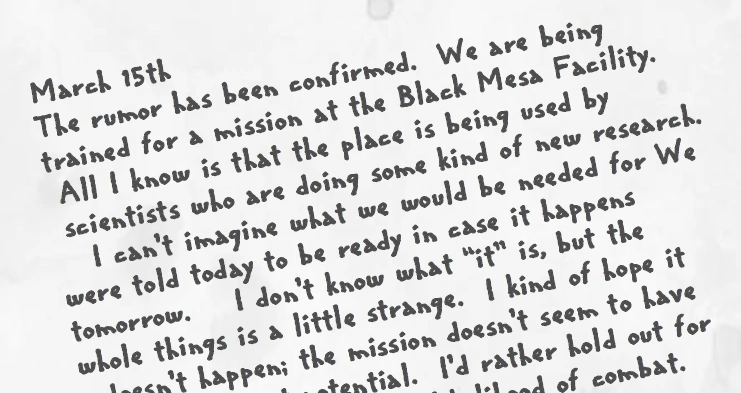 March 15th
The rumor has been confirmed. We are being
trained for a mission at the Black Mesa Facility.
All I know is that the place is being used by
scientists who are doing some kind of new research.
I can't imagine what we would be needed for We
were told today to be ready in case it happens
tomorrow. I don't know what “it” is, but the
whole things is a little strange. I kind of hope it
doesn't happen; the mission doesn't seem to have
potential. I'd rather hold out for
of combat.